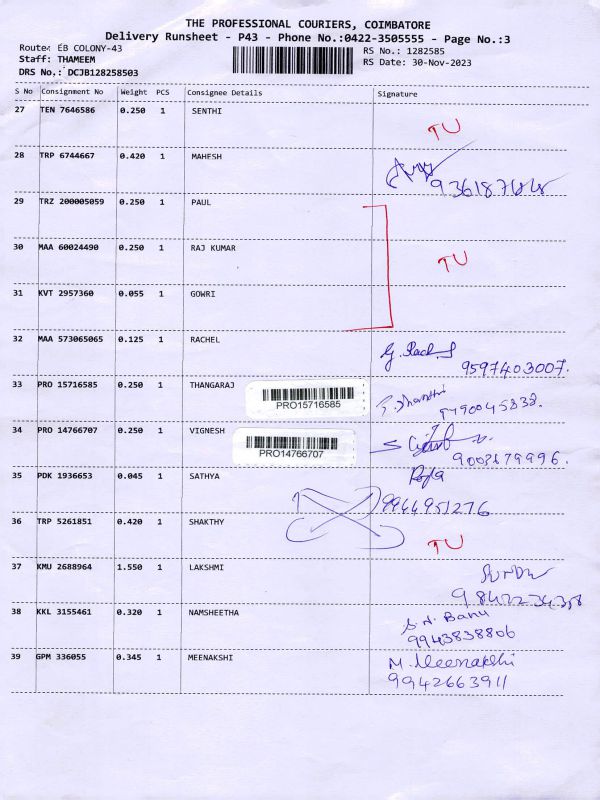 THE PROFESSIONAL COURIERS, COIMBATORE
Delivery Runsheet - P43 - Phone No.:0422-3505555 - Page No.:3
Route: EB COLONY-43
RS No.: 1282585
Staff: THAMEEM
RS Date: 30-Nov-2023
DRS No.: DCJB128258503
S No Consignment No Weight PCS Consignee Details Signature
27 TEN 7646586 0.250 1 SENTHI TU
28 TRP 6744667 0.420 1 MAHESH
29 TRZ 200005059 0.250 1 PAUL
30 MAA 60024490 0.250 1 RAJ KUMAR TU
31 KVT 2957360 0.055 1 GOWRI
32 MAA 573065065 0.125 1 RACHEL
9597403007.
33 PRO 15716585 0.250 1 THANGARAJ
PRO15716585
34 PRO 14766707 0.250 1 VIGNESH
PRO14766707
9003679996.
35 PDK 1936653 0.045 1 SATHYA
9944951276
36 TRP 5261851 0.420 1 SHAKTHY TU
37 KMU 2688964 1.550 1 LAKSHMI
38 KKL 3155461 0.320 1 NAMSHEETHA S.N. Banu
9943838806
39 GPM 336055 0.345 1 MEENAKSHI M. Meenakshi
9942663911